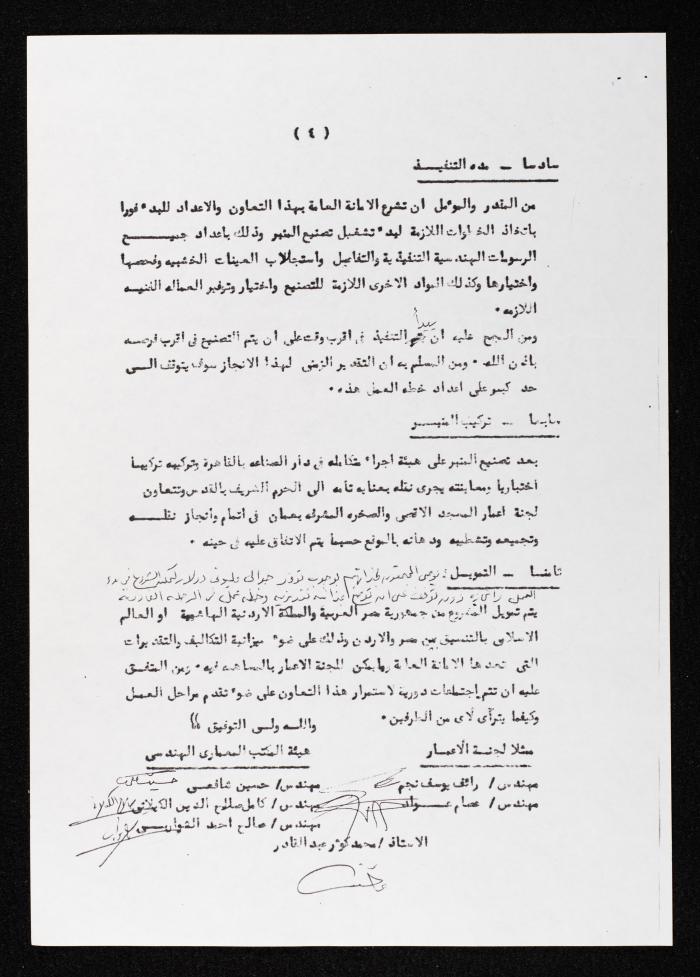 ( ٤ )
سادسا - مده التنفيذ
من المقدر والمؤمل ان تشرع الامانة العامة بهذا التعاون والاعداد للبدء فورا
باتخاذ الخطوات اللازمة لبدء تشغيل تصنيع المنبر وذلك باعداد جميع
الرسومات الهندسية التنفيذية والتفاصيل واستجلاب العينات الخشبيه وفحصها
واختيارها وكذلك المواد الاخرى اللازمة للتصنيع واختيار وتوفير العماله الفنيه
اللازمه .
يبدأ
ومن المجمع عليه ان يتم التنفيذ فى اقرب وقت على ان يتم التصنيع فى اقرب فرصه
باذن الله . ومن المسلم به ان التقدير الزمنى لهذا الانجاز سوف يتوقف الى
حد كبير على اعداد خطه العمل هذه .
سابعا - تركيب المنبر
بعد تصنيع المنبر على هيئة اجزاء متكامله فى دار الصناعه بالقاهرة وتركيبه تركيبا
اختباريا ومعاينته يجرى نقله بعنايه تامه الى الحرم الشريف بالقدس وتتعاون
لجنة اعمار المسجد الاقصى والصخره المشرفه بعمان فى اتمام وانجاز نقله
وتجميعه وتشطيبه ودهانه بالموقع حسبما يتم الاتفاق عليه فى حينه .
ثامنا - التمويل : يوصى المجتمعون بوجوب توفر حوالى مليونى دولار
العمل
يتم تمويل المشروع من جمهورية مصر العربية والمملكة الاردنية الهاشمية او العالم
الاسلامى بالتنسيق بين مصر والاردن وذلك على ضوء ميزانية التكاليف والتقديرات
التى تعدها الامانة العامة وما يمكن للجنة الاعمار بالمساهمه فيه . ومن المتفق
عليه ان تتم إجتماعات دورية لاستمرار هذا التعاون على ضوء تقدم مراحل العمل
وكيفما يترآى لاى من الطرفين .
والله ولى التوفيق ،،
ممثلا لجنة الاعمار
هيئة المكتب المعمارى الهندسى
مهندس/ رائف يوسف نجم
مهندس/ حسين شافعى
مهندس/ عصام عواد
مهندس/ كامل صالح الدين الكيلانى
مهندس/ صالح احمد الشواربى
الاستاذ /محمد كوثر عبد القادر